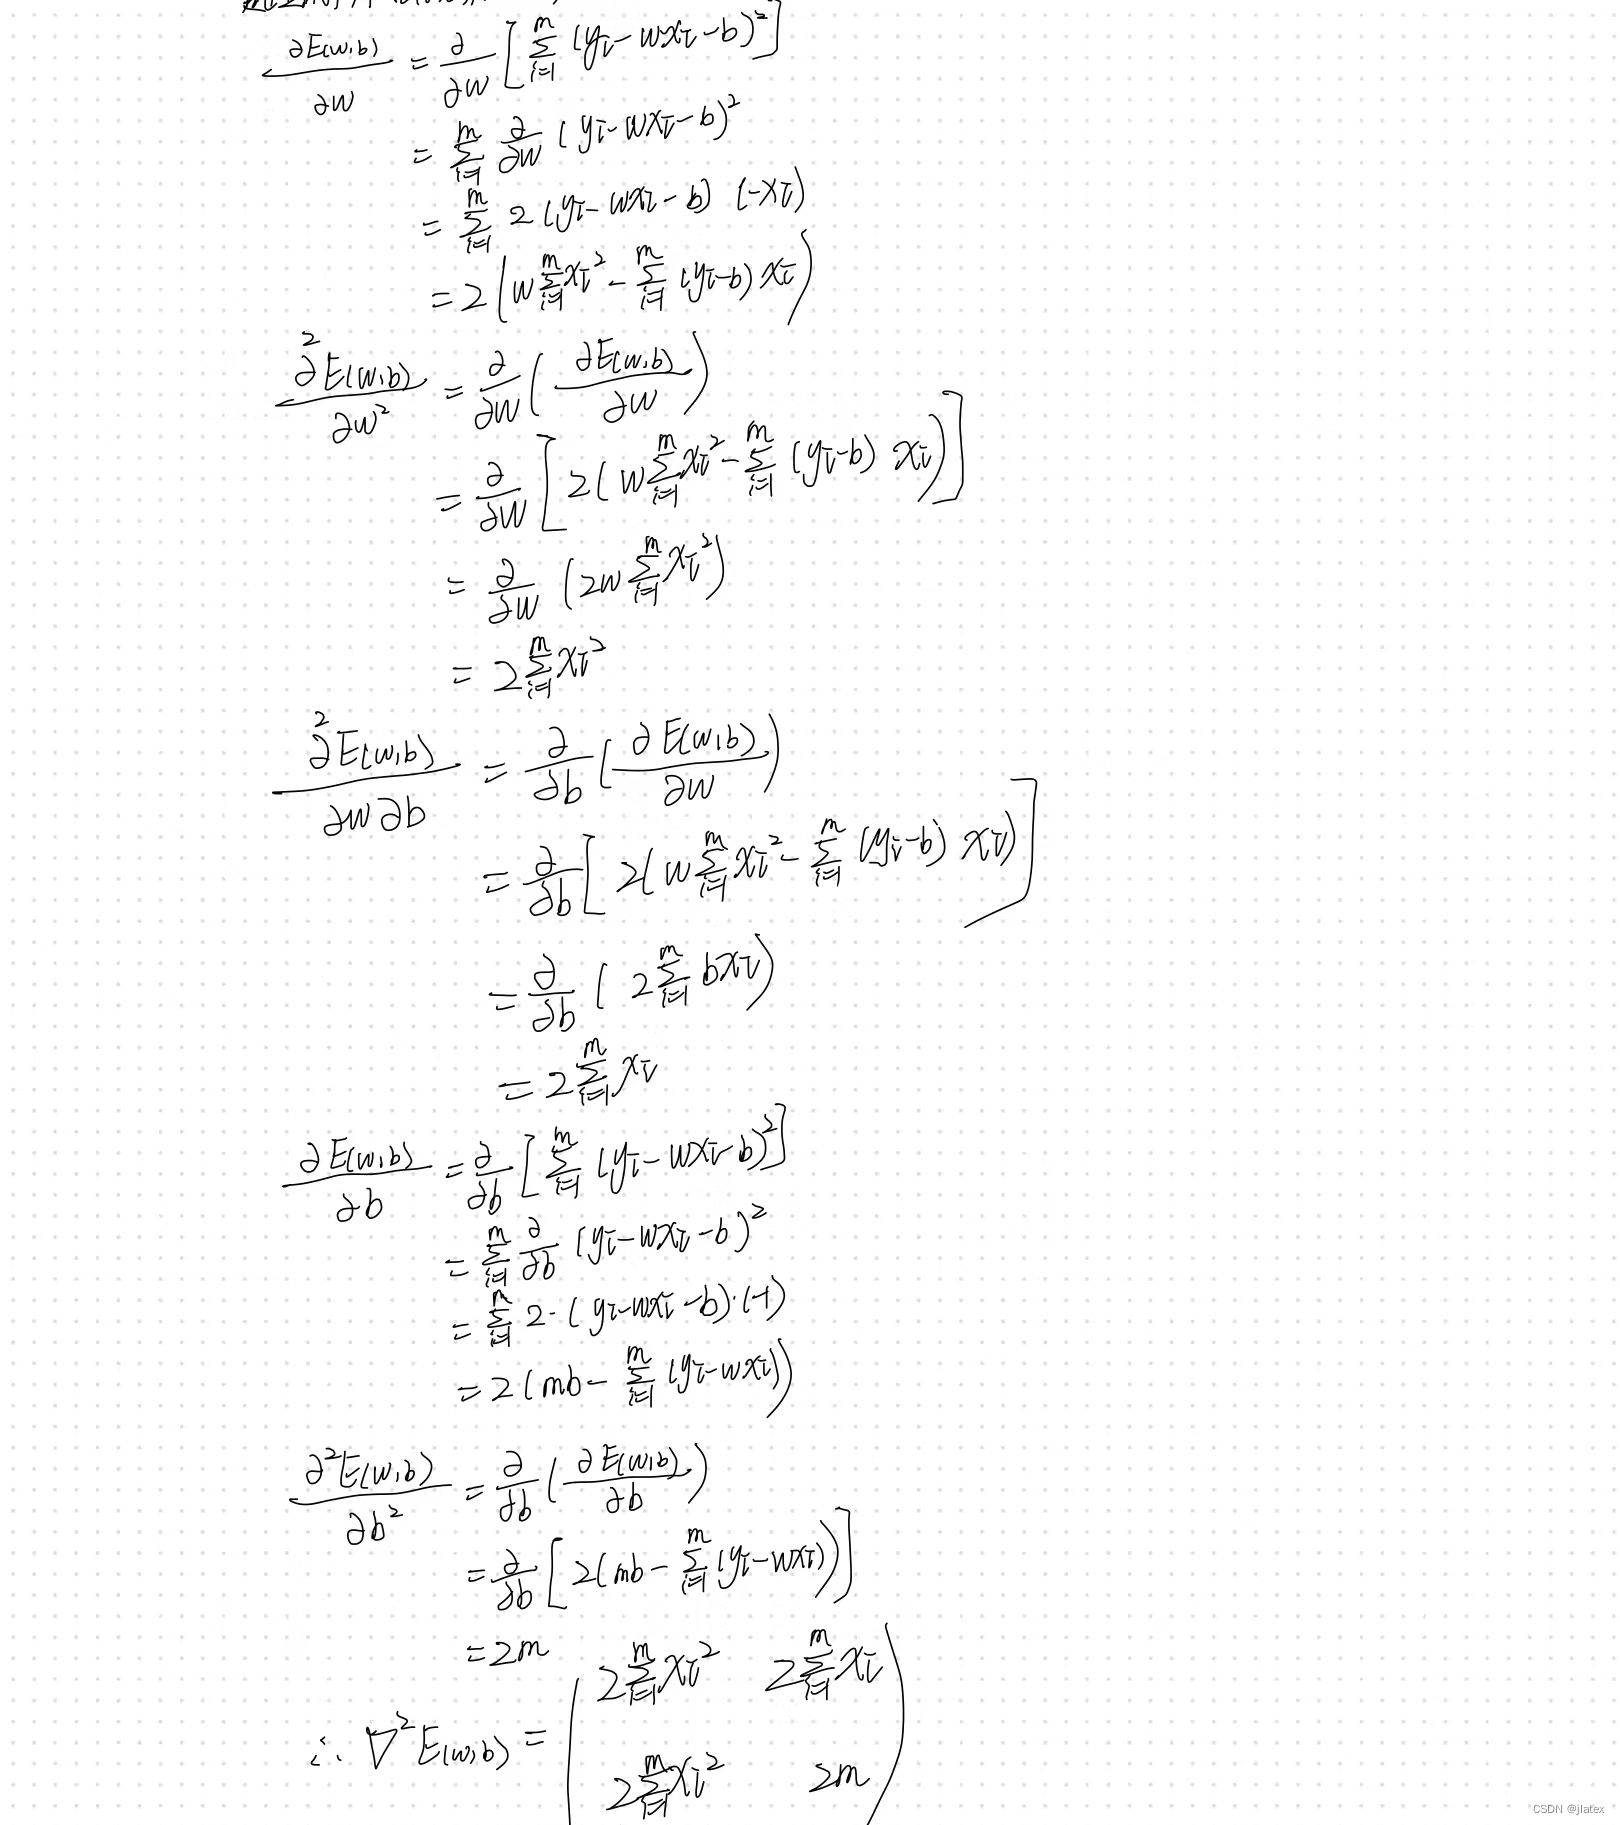 ∂E(w,b)/∂w = ∂/∂w [∑_{i=1}^{m} (y_i - wx_i - b)^2]
= ∑_{i=1}^{m} ∂/∂w (y_i - wx_i - b)^2
= ∑_{i=1}^{m} 2(y_i - wx_i - b) (-x_i)
= 2(w∑_{i=1}^{m}x_i^2 - ∑_{i=1}^{m} (y_i-b) x_i)
∂^2E(w,b)/∂w^2 = ∂/∂w (∂E(w,b)/∂w)
= ∂/∂w [2(w∑_{i=1}^{m}x_i^2 - ∑_{i=1}^{m} (y_i-b) x_i)]
= ∂/∂w (2w∑_{i=1}^{m}x_i^2)
= 2∑_{i=1}^{m}x_i^2
∂^2E(w,b)/∂w∂b = ∂/∂b (∂E(w,b)/∂w)
= ∂/∂b [2(w∑_{i=1}^{m}x_i^2 - ∑_{i=1}^{m} (y_i-b) x_i)]
= ∂/∂b (2∑_{i=1}^{m} bx_i)
= 2∑_{i=1}^{m} x_i
∂E(w,b)/∂b = ∂/∂b [∑_{i=1}^{m} (y_i - wx_i - b)^2]
= ∑_{i=1}^{m} ∂/∂b (y_i - wx_i - b)^2
= ∑_{i=1}^{m} 2·(y_i - wx_i - b)·(-1)
= 2(mb - ∑_{i=1}^{m} (y_i - wx_i))
∂^2E(w,b)/∂b^2 = ∂/∂b (∂E(w,b)/∂b)
= ∂/∂b [2(mb - ∑_{i=1}^{m} (y_i - wx_i))]
= 2m
2∑_{i=1}^{m}x_i^2 2∑_{i=1}^{m}x_i
∴ ∇^2E(w,b) =
2∑_{i=1}^{m}x_i^2 2m
CSDN @jlatex